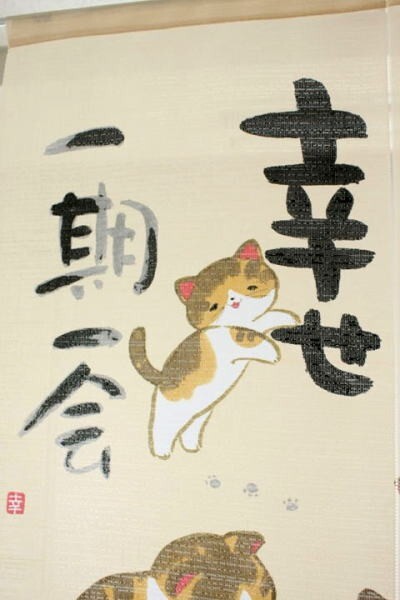 幸せ
一期一会
幸